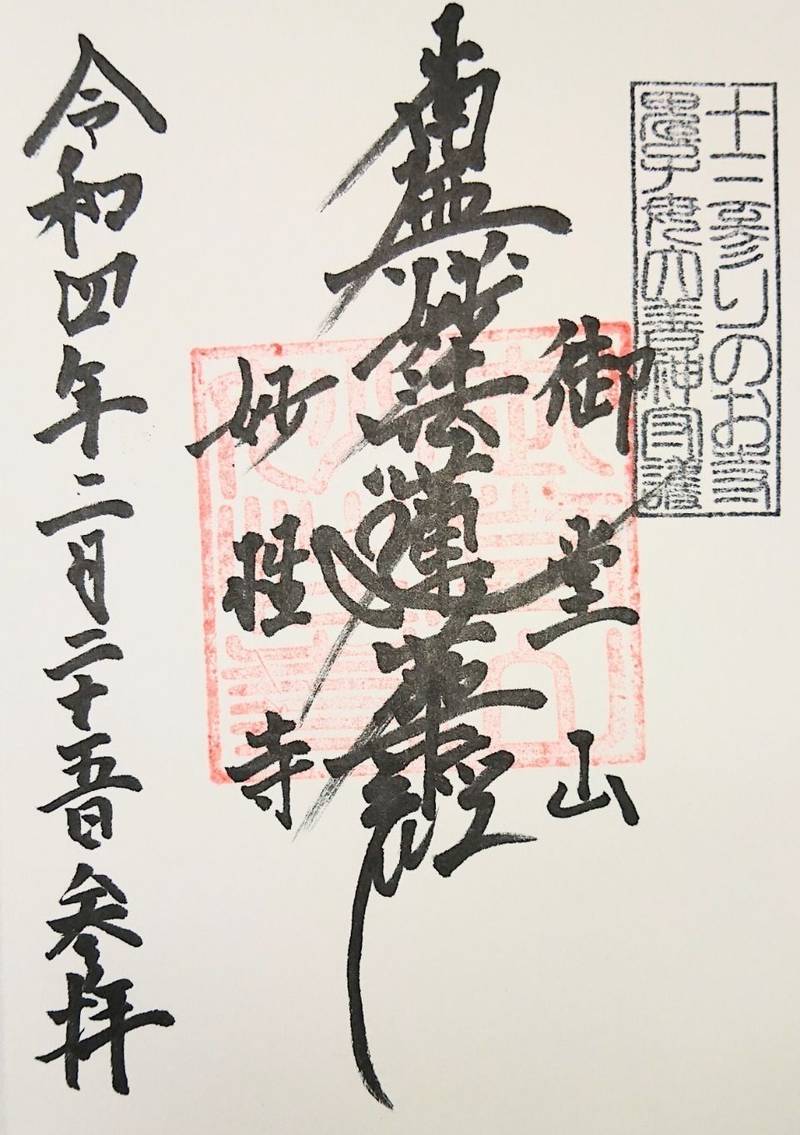 十三参りのお寺
大善神守護
御堂山
南無妙法蓮華経
妙
寺
令和四年二月二十五日参拝